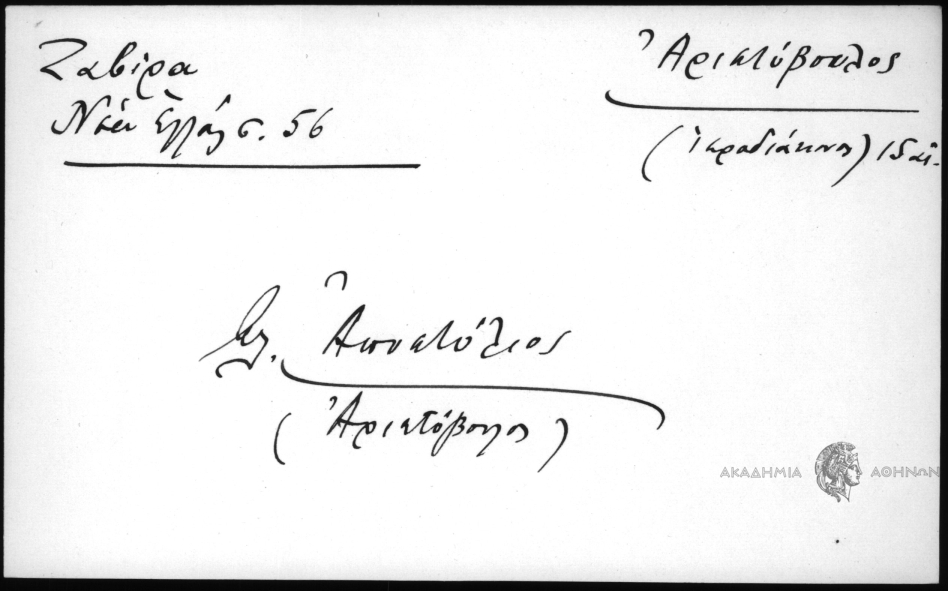 Ζαβίρα
Νέα Ἑλλάς σ. 56
Ἀριστόβουλος
(ἱεροδιάκονος) 15 αἰ.
Βλ. Ἀποστόλιος
(Ἀριστόβουλος)
ΑΚΑΔΗΜΙΑ ΑΘΗΝΩΝ